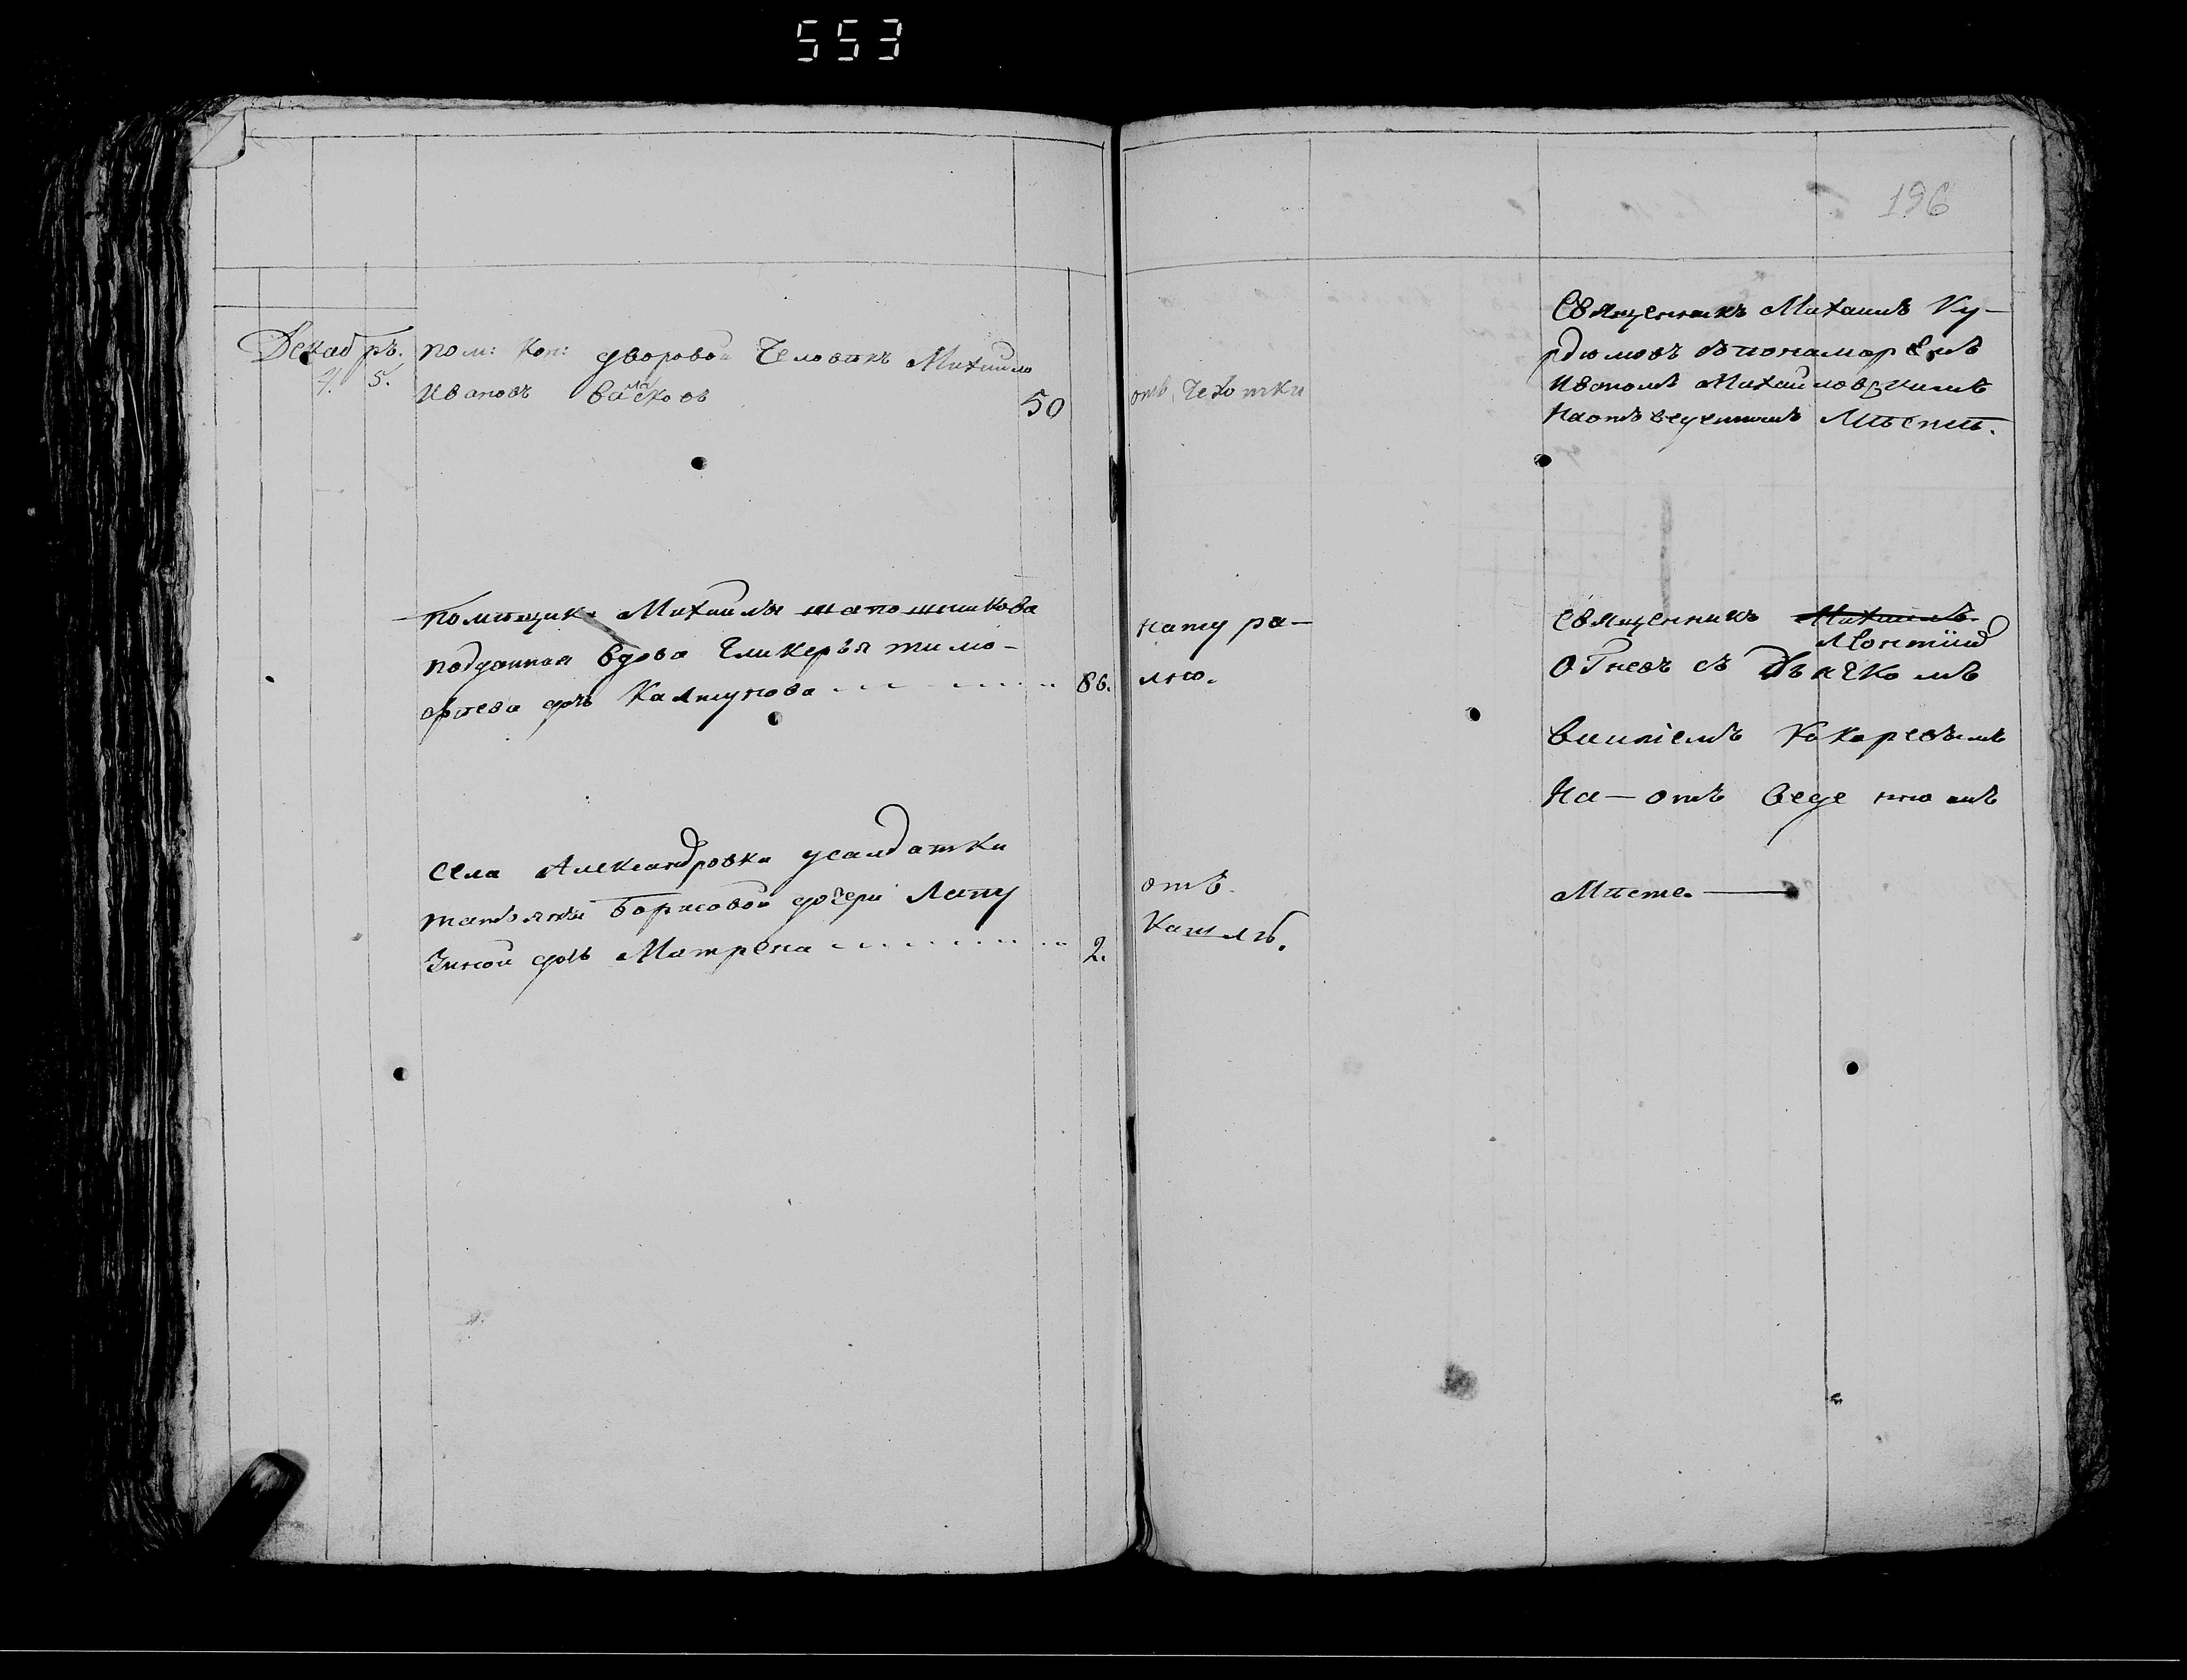 553
196
Декаб ръ.
4. 5.
пом: Кон: дворовой Человѣкъ Михайло
Ивановъ Васковъ
50
отъ Чехотки
Священникъ Михаилъ Ку-
рдюмовъ съпономарёмъ
Иваномъ Михайловскимъ
Наотъведенномъ Мѣстѣ.
помѣщика Михайлы шапошникова
подданная вдова Гликерья тимо-
фѣева дочь Калтунова
86.
Натура-
лно.
Священникъ Михаилъ
Леонтий
Огневъ съ Дьячкомъ
Васипіемъ Кокоревымъ
На-отъ веде нномъ
Мѣсте.
села Александровки усалдатки
татьяны Борисовой дочери Лапу
Зиной дочь Матрена
2.
отъ
Кашля.